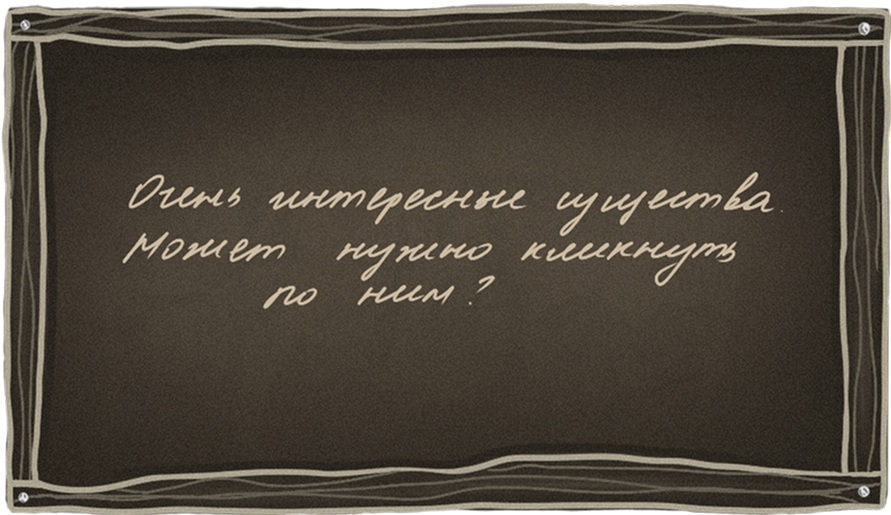 Очень интересные существа.
Может нужно кликнуть
по ним?